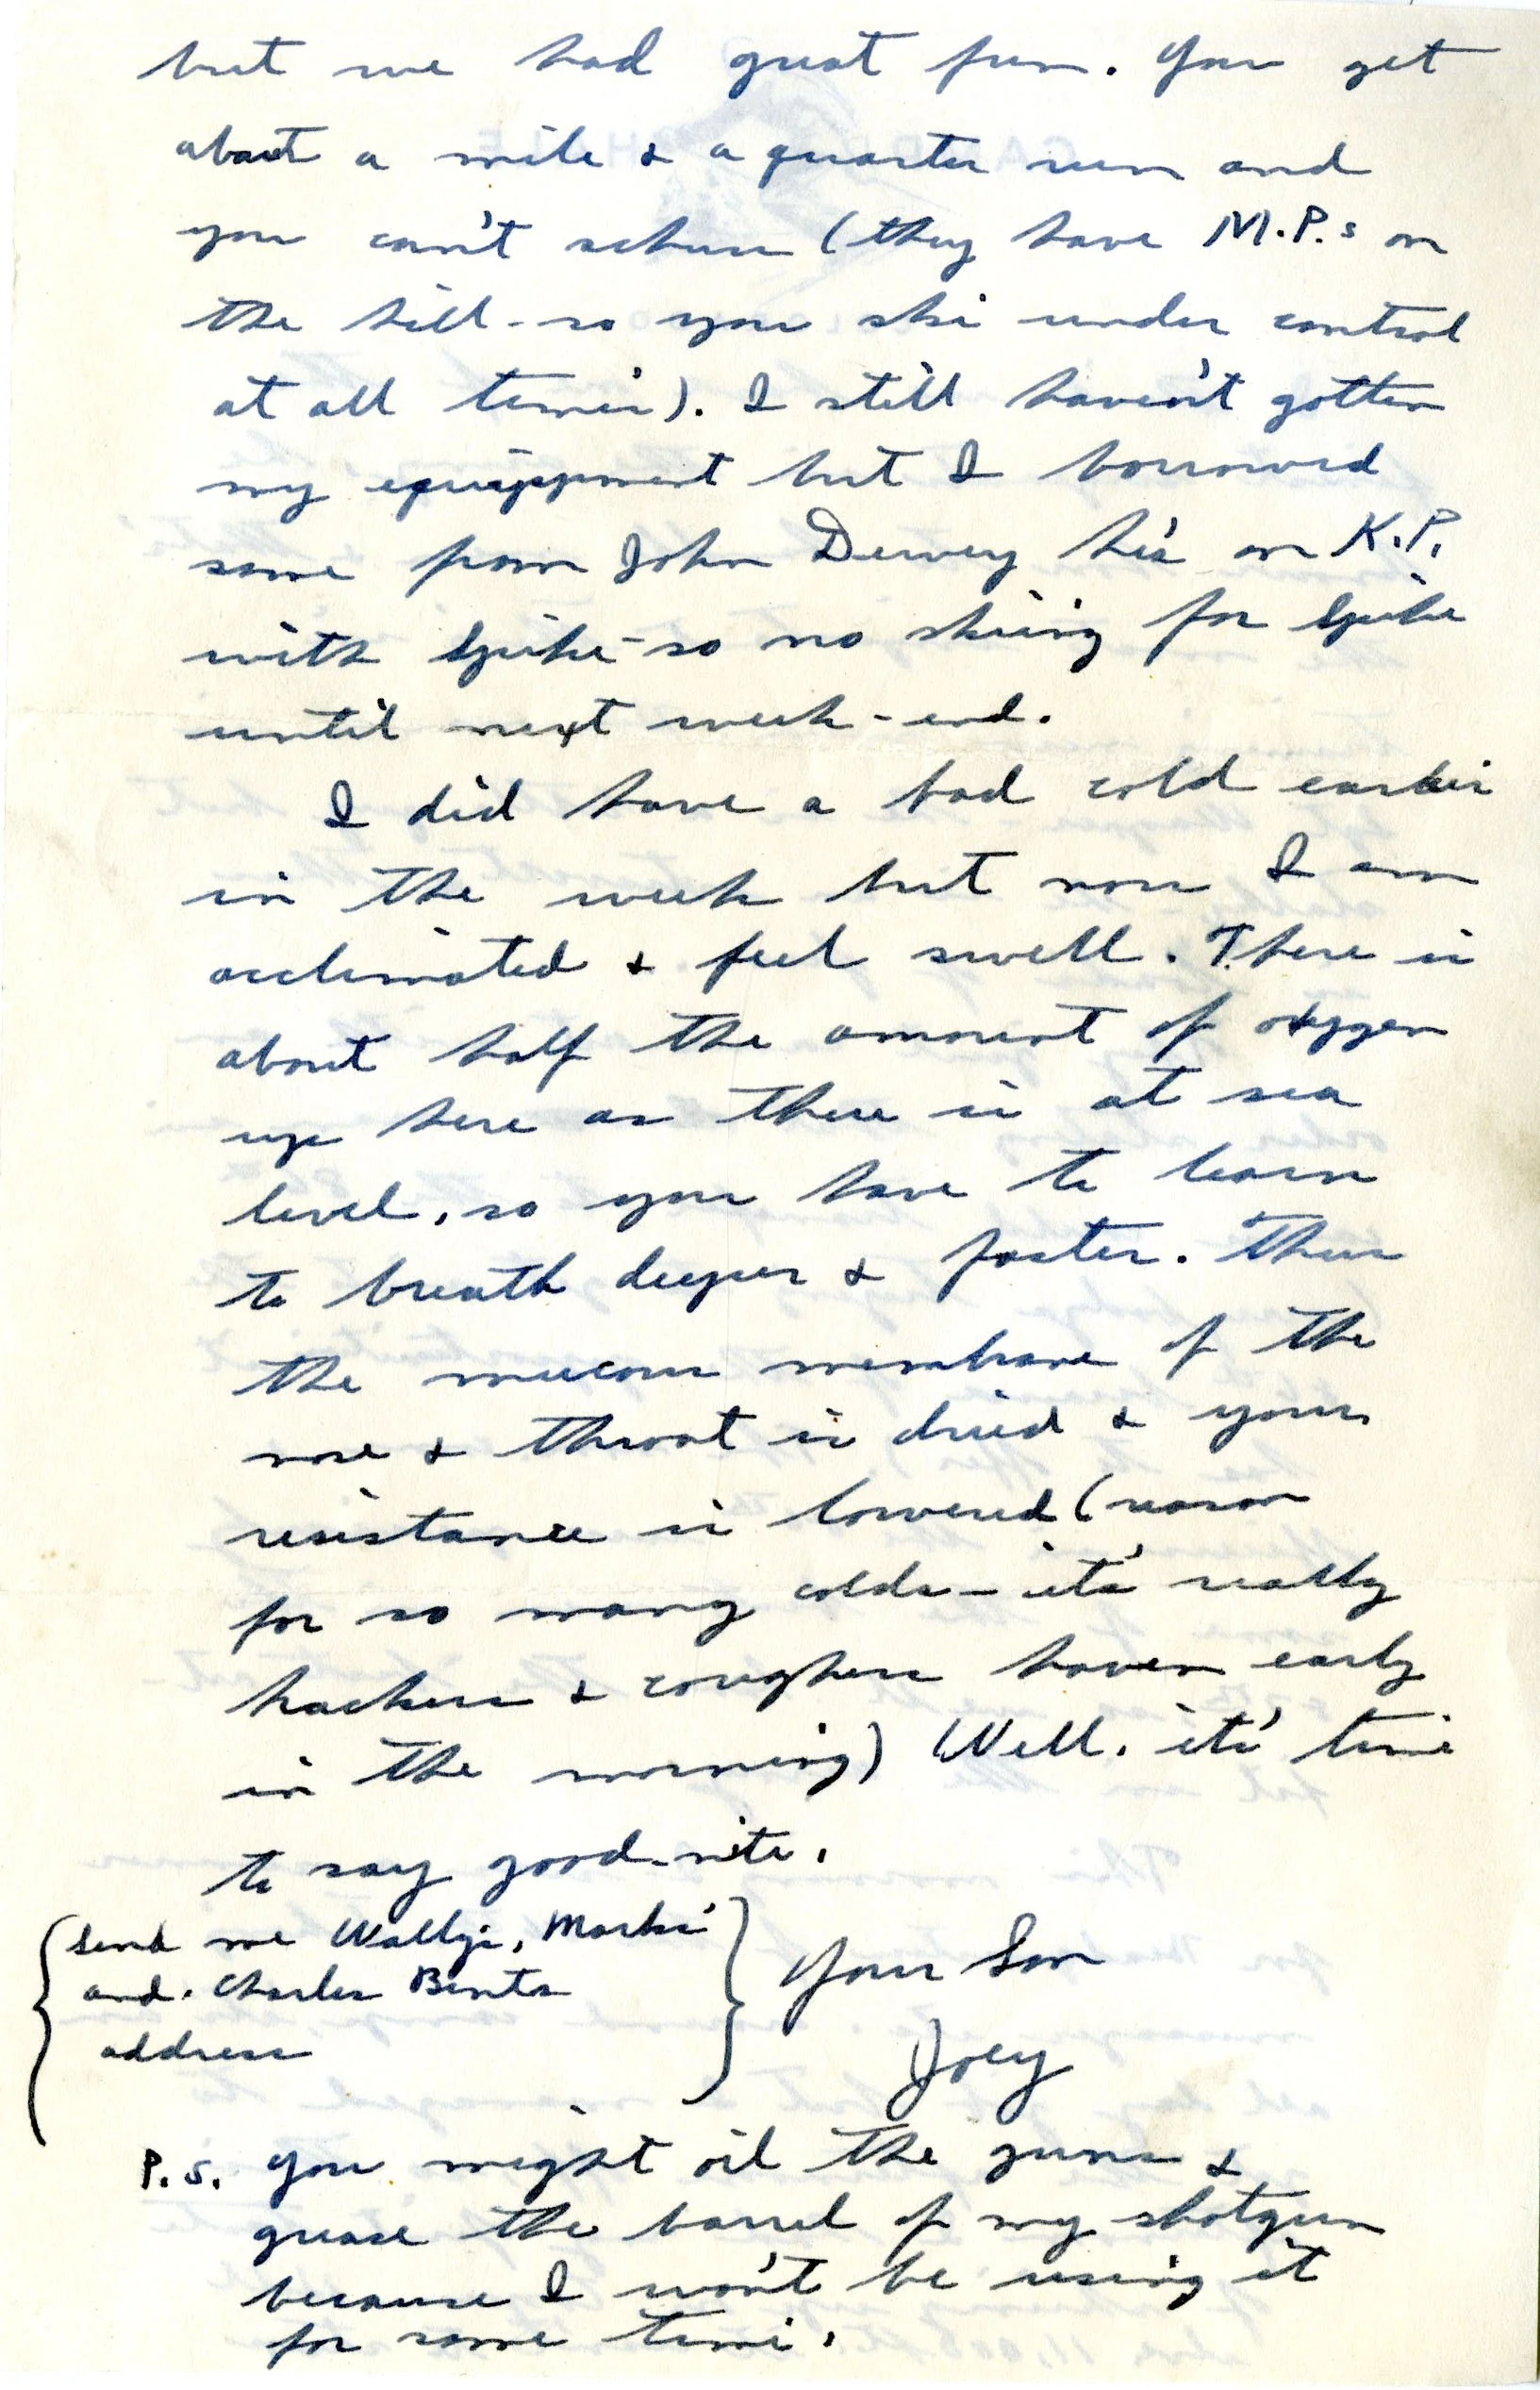 but we had great fun. You get
about a mile & a quarter run and
you can't schuss (they have M.P.s on
the hill - so you ski under control
at all times). I still haven't gotten
my equippment but I borrowed
some from John Dewey he's on K.P.
with Spike - so no skiing for Spike
until next week-end.
I did have a bad cold earlier
in the week but now I am
acclimated & feel swell. There is
about half the amount of oxygen
up here as there is at sea
level, so you have to learn
to breath deeper & faster. Then
the mucous membrane of the
nose & throat is dried & your
resistance is lowered (reason
for so many colds - it's really
hackers & coughers haven early
in the morning) Well, it's time
to say good-nite.
Send me Wally's, Marks'
and Charles Bents
address
Your Son
Joey
P.S. You might oil the guns &
grease the barrel of my shotgun
because I won't be using it
for some time.